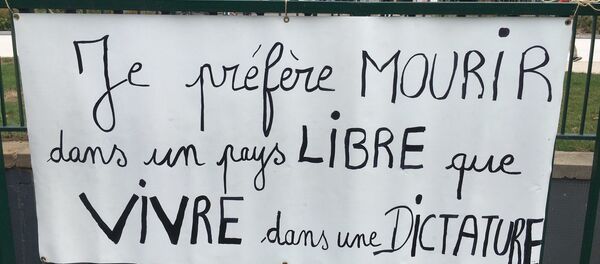 Je préfère MOURIR
dans un pays LIBRE que
VIVRE dans une DICTATURE